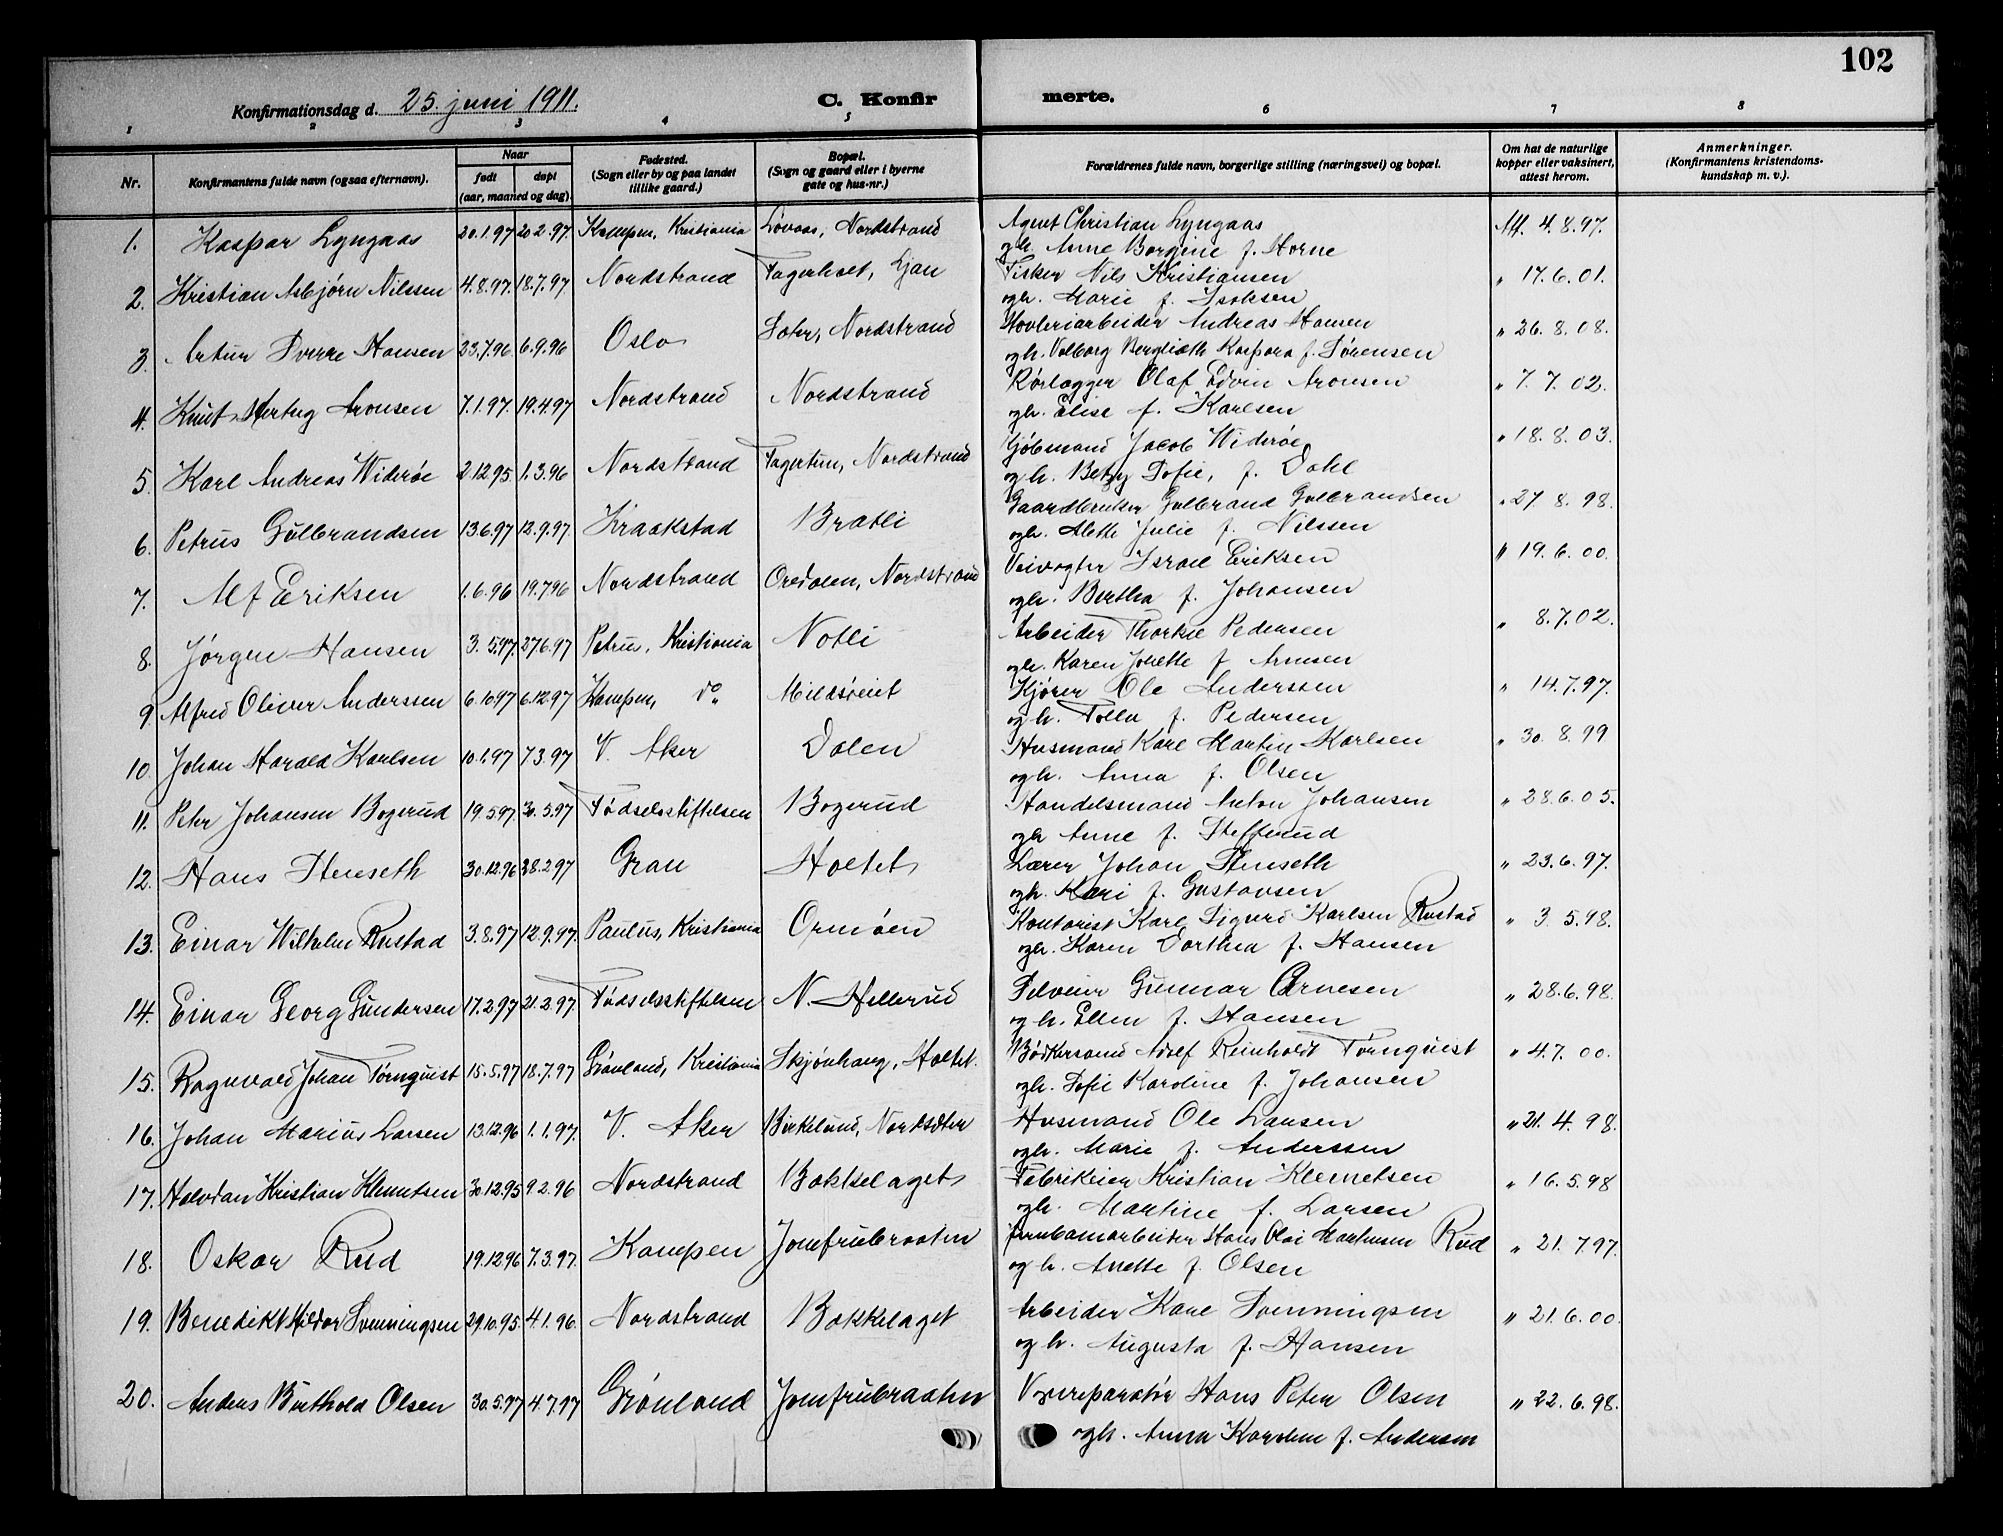 102
Konfirmationsdag d. 25. juni 1911. C. Konfir merte.
1 2 3 4 5 6 7 8
Nr. Konfirmantens fulde navn (ogsaa efternavn). Naar født døpt (aar, maaned og dag). Fødested. (Sogn eller by og paa landet tillike gaard.) Bopæl. (Sogn og gaard eller i byerne gate og hus-nr.) Forældrenes fulde navn, borgerlige stilling (næringsvei) og bopæl. Om hat de naturlige kopper eller vaksinert, attest herom. Anmerkninger. (Konfirmantens kristendoms-kundskap m. v.).
1. Kaspar Lyngaas 20.1.97 20.2.97. Kampen, Kristiania Løvaas, Nordstrand Agent Christian Lyngaas Att. 4.8.97.
ogh. Anne Borgine f. Horne
2. Kristian Asbjørn Nilssen 4.8.97. 18.7.97 Nordstrand Fagerholt, Ljan Fisker Nils Kristiansen " 17.6.01.
ogh. Marie f. Isaksen
3. Artur Sverre Hansen 23.7.96 6.9.96 Oslo Sæter, Nordstrand Høvleriarbeider Andreas Hansen " 26.8.08.
ogh. Valborg Berglioth Kaspara f. Sørensen
4. Knut Hertug Aronsen 7.1.97. 19.4.97 Nordstrand Nordstrand Rørlægger Olaf Edvin Aronsen " 7.7.02.
ogh. Elise f. Karlsen
5. Karl Andreas Widerøe 2.12.95 1.3.96 Nordstrand Fagertun, Nordstrand Kjøbmand Jacob Widerøe " 18.8.03.
ogh. Betzy Sofie, f. Dahl
6. Petrus Gulbrandsen 13.6.97 12.9.97. Kraakstad Bratli Gaardbruker Gulbrand Gulbrandsen " 27.8.98.
ogh. Alette Julie f. Nilssen
7. Alf Eriksen 1.6.96 19.7.96 Nordstrand Oredalen, Nordstrand Veivogter Israel Eriksen " 19.6.00.
ogh. Bertha f. Johansen
8. Jørgen Hansen 3.5.97. 27.6.97 Petrus, Kristiania Nøtli Arbeider Thorkel Pedersen " 8.7.02.
ogh. Karen f. Arnesen
9. Alfred Oliver Anderssen 6.10.97 6.12.97 Kampen, do. Mildsveiet Kjører Ole Anderssen " 14.7.97.
ogh. Tolla f. Pedersen
10. Johan Harald Karlsen 10.1.97 7.3.97 V. Aker Dalen Husmand Karl Martin Karlsen " 30.8.99
ogh. Anna f. Olsen
11. Peter Johansen Bogerud 19.5.97 30.5.97 Fødselsstiftelsen Bogerud Handelsmand Anton Johansen " 28.6.05.
ogh Anne f. Stefferud
12. Hans Stenseth 30.12.96 28.2.97 Gran Holtet Lærer Johan Stenseth " 23.6.97.
ogh. Kari f. Gustavsen
13. Einar Wilhelm Rustad 3.8.97 12.9.97. Paulus, Kristiania Ormøen Kontorist Karl Sigurd Karlsen Rustad " 3.5.98.
ogh. Karen Dorthea f. Hansen
14. Einar Georg Gundersen 17.2.97 21.3.97. Fødselsstiftelsen N. Hellerud Selveier Gunnar Arnesen " 28.6.98.
ogh. Ellen f. Hansen
15. Ragnvald Johan Törnquist 15.5.97 18.7.97 Grønland, Kristiania Skjønhaug, Holtet. Bødkersvend Adolf Reinholdt Törnquist " 4.7.00.
ogh. Sofie Karoline f. Johansen
16. Johan Marius Larsen 13.12.96 1.1.97. V. Aker Birkelund, Nordsæter Husmand Ole Larsen " 21.4.98.
ogh. Marie f. Anderssen
17. Halvdan Kristian Klemetsen 30.12.95 9.2.96 Nordstrand Bækkelaget Fabrikeier Kristian Klemetsen " 16.5.98
ogh. Martine f. Larsen
18. Oskar Rud 19.12.96 7.3.97. Kampen Jomfrubraaten Jernbanearbeider Hans Olai Martinsen Rud " 21.7.97.
ogh. Anette f. Olsen
19. Benedikt Hildor Svenningsen 29.10.95. 4.1.96. Nordstrand Bækkelaget Arbeider Karl Svenningsen " 21.6.00.
ogh. Augusta f. Hansen
20. Anders Berthold Olsen 30.5.97 4.7.97 Grønland Jomfrubraaten Vognreparatør Hans Peter Olsen " 22.6.98.
ogh. Anna Karoline f. Andersen